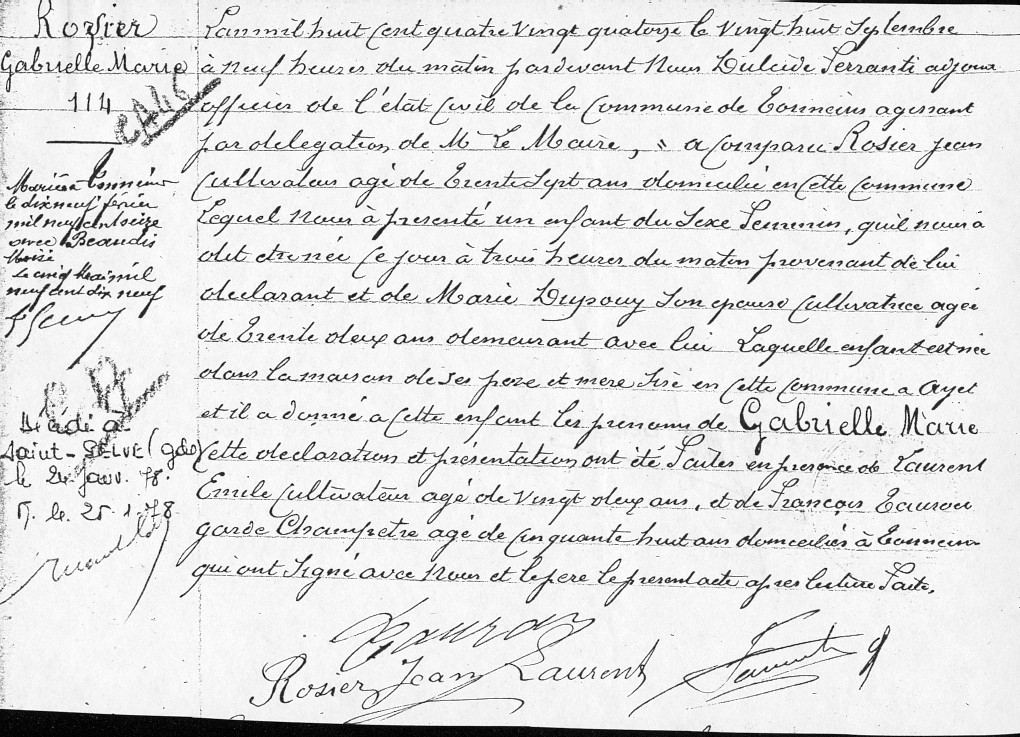 Rosier
Gabrielle Marie
114
Mariée à Tonneins
le dix neuf février
mil neuf cent seize
avec Beaudis
Le cinq Mai mil
neuf cent dix neuf
Décédé à
Saint-SELVE (gde)
le 24 janv. 78.
M. le 25.1.78.
L'an mil huit cent quatre vingt quatorze le vingt huit Septembre
à neuf heures du matin pardevant Nous Dulcide Ferranti adjoint
officier de l'état civil de la Commune de Tonneins agissant
par delegation de Mr Le Maire, " a Comparu Rosier Jean
Cultivateur agé de Trente Sept ans domicilié en cette Commune
Lequel Nous à presenté un enfant du Sexe Feminin, qu'il nous à
dit etre née ce jour à trois heures du matin provenant de lui
declarant et de Marie Dupouy Son epouse Cultivatrice agée
de Trente deux ans demeurant avec lui Laquelle enfant est née
dans la maison de ses pere et mere Sise en cette commune a Ayet
et il a donné a Cette enfant les prenoms de Gabrielle Marie
Cette declaration et présentation ont été Faites en presence de Laurent
Emile Cultivateur agé de Vingt deux ans, et de François Tauran
garde Champetre agé de cinquante huit ans domiciliés à Tonneins
qui ont Signé avec Nous et le pere le present acte apres lecture Faite.
Tauran
Rosier Jean Laurent